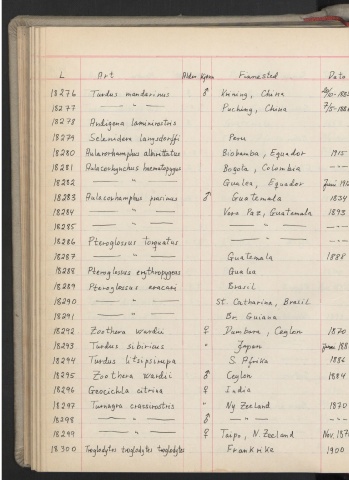 L Art Alder Kjønn Funnsted Dato
18276 Turdus mandarinus ♂ Kuning, China
18277 — " — Puching, China 7/5-188
18278 Andigena laminirostris
18279 Selenidera langsdorffi Peru
18280 Aulacorhamphus albivittatus Biobamba, Equador 1915
18281 Aulacorhynchus haematopygus Bogota, Colombia — " —
18282 " Gualea, Equador Juni 191
18283 Aulacorhamphus prasinus ♂ Guatemala 1834
18284 — " — Vera Paz, Guatemala 1893
18285 — " — — " — — " —
18286 Pteroglossus torquatus — " —
18287 — " — Guatemala 1888
18288 Pteroglossus erythropygeas Gualea
18289 Pteroglossus aracari Brasil
18290 — " — St. Catharina, Brasil
18291 — " — Br. Guiana
18292 Zoothera wardii ♀ Dumbara, Ceylon 1870
18293 Turdus sibiricus " Japan 188
18294 Turdus litsipsirupa S. Afrika 1886
18295 Zoothera wardii ♂ Ceylon 1884
18296 Geocichla citrina ♀ India
18297 Turnagra crassirostris " Ny Zeeland 1870
18298 — " — ♂ — " — — " —
18299 — " — ♀ Taipo, N. Zeeland Nov. 187
18300 Troglodytes troglodytes troglodytes Frankrike 1900